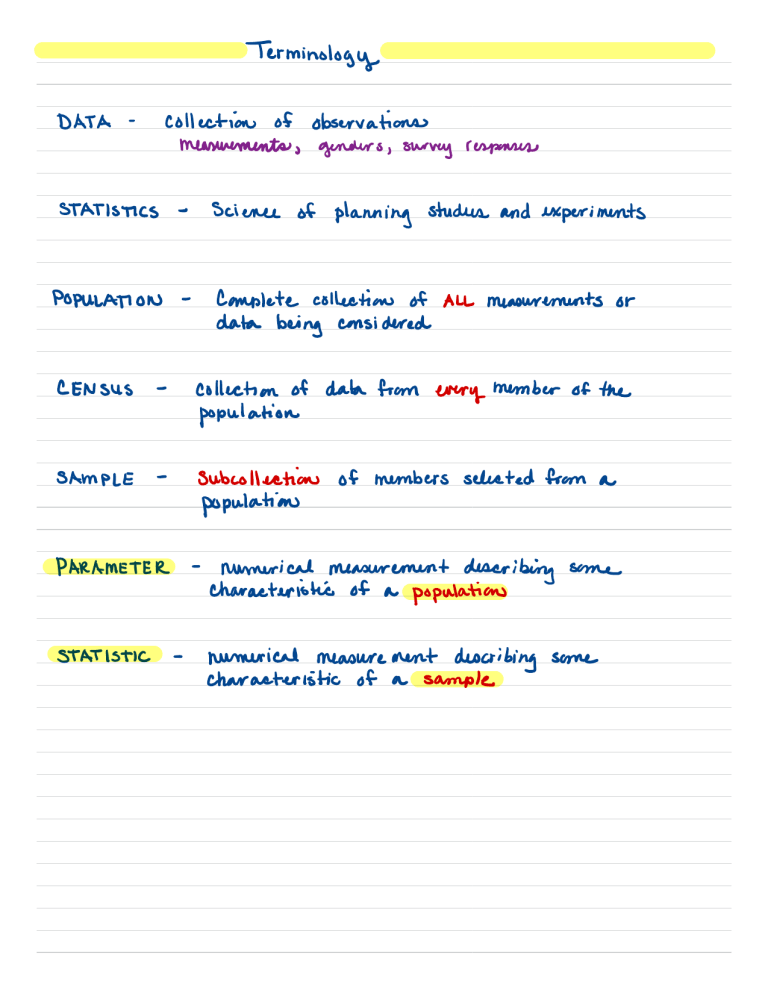 Terminology
DATA - collection of observations
measurements, genders, survey responses
STATISTICS - Science of planning studies and experiments
POPULATION - Complete collection of ALL measurements or
data being considered
CENSUS - collection of data from every member of the
population
SAMPLE - Subcollection of members selected from a
population
PARAMETER - numerical measurement describing some
characteristic of a population
STATISTIC - numerical measurement describing some
characteristic of a sample